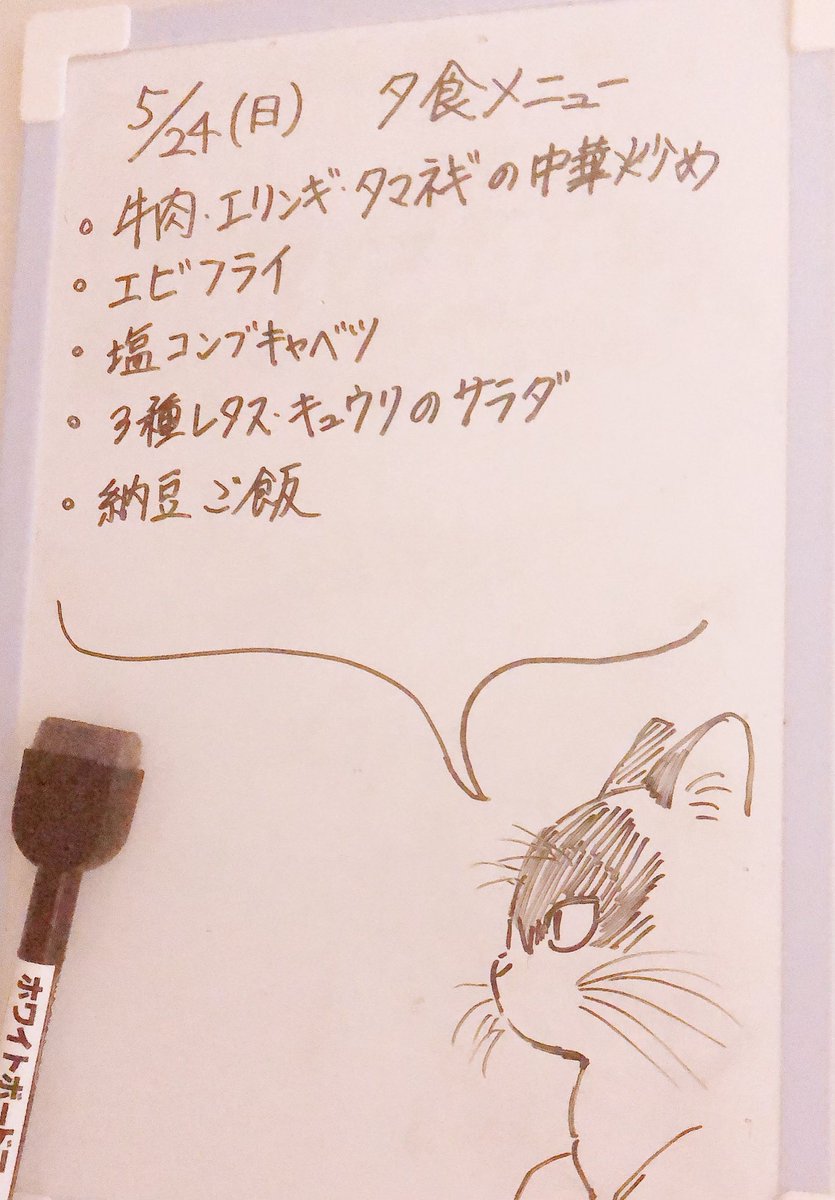 5/24(日) 夕食メニュー
。牛肉・エリンギ・タマネギの中華炒め
。エビフライ
。塩コンブキャベツ
。3種レタス・キュウリのサラダ
。納豆ご飯
ホワイトボードマ